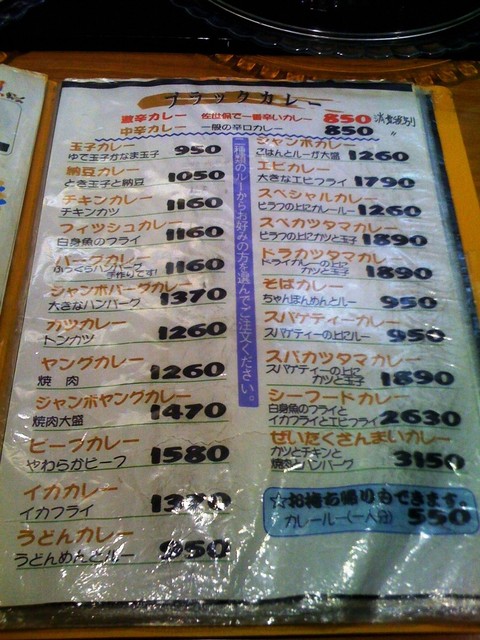 ブラックカレー
激辛カレー 佐世保で一番辛いカレー 850 消費税別
中辛カレー 一般の辛口カレー 850 〃
玉子カレー 950
ゆで玉子かなま玉子
納豆カレー 1050
とき玉子と納豆
チキンカレー 1160
チキンカツ
フィッシュカレー 1160
白身魚のフライ
ハーフカレー 1160
ふっくらハンバーグ
手作りです!
ジャンボバーグカレー 1370
大きなハンバーグ
カツカレー 1260
トンカツ
ヤングカレー 1260
焼肉
ジャンボヤングカレー 1470
焼肉大盛
ビーフカレー 1580
やわらかビーフ
イカカレー 1370
イカフライ
うどんカレー 950
うどんめんとルー
二種類のルーからお好みの方を選んでご注文ください。
ジャンボカレー 1260
ごはんとルーが大盛
エビカレー 1790
大きなエビフライ
スペシャルカレー 1260
ピラフの上にカレールー
スペカツタマカレー 1890
ピラフの上にカツと玉子
ドラカツタマカレー 1890
ドライカレーの上に
カツと玉子
そばカレー 950
ちゃんぽんめんとルー
スパゲティーカレー 950
スパゲティーの上にルー
スパカツタマカレー 1890
スパゲティーの上に
カツと玉子
シーフードカレー 2630
白身魚のフライと
イカフライとエビフライ
ぜいたくさんまいカレー 3150
カツとチキンと
焼肉とハンバーグ
☆お持ち帰りもできます。
カレールー(一人分) 550